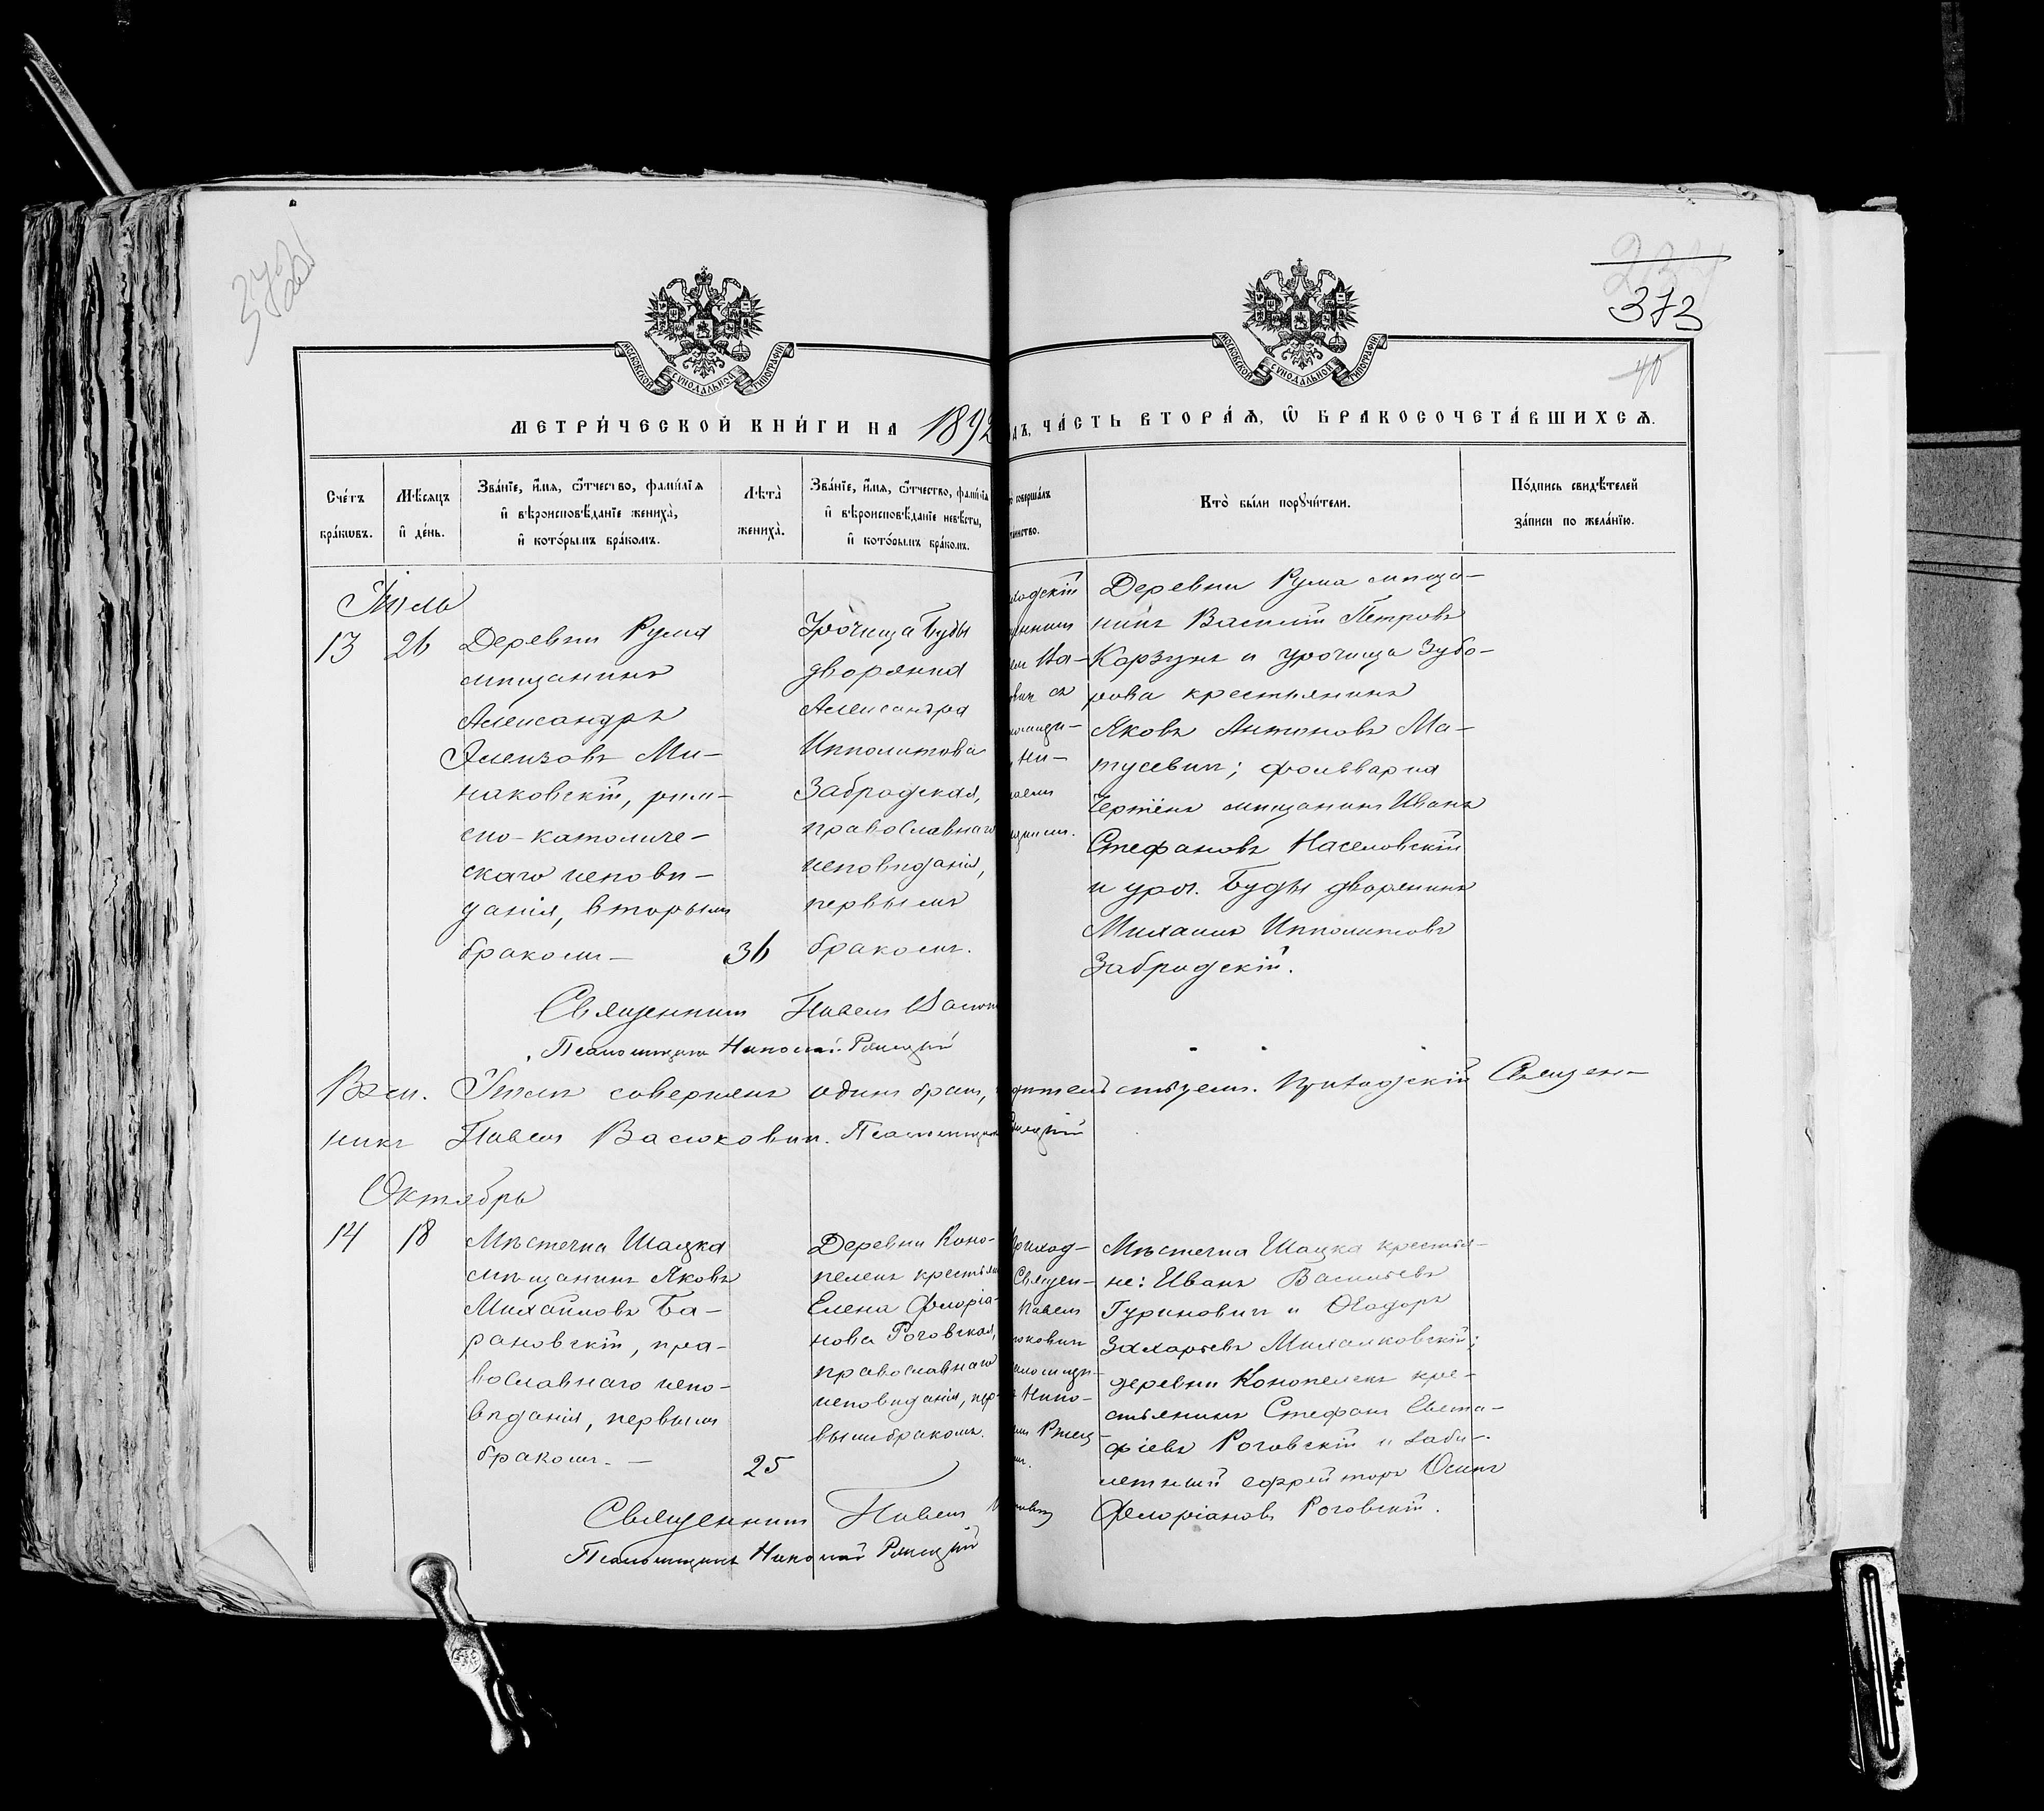 373
МОСКОВСКОЙ СѴНОДАЛЬНОЙ ТИПОГРАФІИ
МОСКОВСКОЙ СѴНОДАЛЬНОЙ ТИПОГРАФІИ
40
МЕТРИ́ЧЕСКОЙ КНИ́ГИ НА 1892
ДЪ, ЧА́СТЬ ВТОРА́Ѧ, Ѿ БРАКОСОЧЕТА́ВШИХСѦ.
Сче́тъ
бра́кѡвъ.
Мѣ́сяцъ
и҆ де́нь.
Зва́нїе, и҆́мѧ, ѻ҆́тчество, фами́лїѧ
и҆ вѣроисповѣ́данїе жениха̀,
и҆ кото́рымъ бра́комъ.
Лѣ́та
жениха̀.
Зва́нїе, и҆́мѧ, ѻ҆́тчество, фами́лїѧ
и҆ вѣроисповѣ́данїе невѣ́сты,
и҆ кото́рымъ бра́комъ.
соверша́лъ
инство.
Кто̀ бы́ли порꙋчи́тели.
По́дпись свидѣ́телей
за́писи по жела́нїю.
Іюль
13
26
Деревни Рума
мѣщанинъ
Александръ
Ми-
наковскій, рим-
ско-католиче-
скаго исповѣ-
данія, вторымъ
бракомъ –
36
Урочища Буды
дворянка
Александра
Ипполитова
Забродская,
православнаго
исповѣданія,
первымъ
бракомъ.
Деревни Рума мѣща-
нинъ Василій Петровъ
Корзунъ и урочища Зубо-
рова крестьянинъ
Яковъ Антоновъ Ма-
тусевичъ; фольварка
Чертёнъ мѣщанинъ Иванъ
Стефановъ Населовскій
и уроч. Буды дворянинъ
Михаилъ Ипполитовъ
Забродскій.
Священникъ Павелъ
Псаломщикъ Николай
Іюлѣ совершенъ одинъ бракъ, Приходскій Священ-
никъ Павелъ Васюковичъ. Псаломщикъ
Октябрь
14
18
Мѣстечка Шацка
мѣщанинъ Яковъ
Михайловъ Ба-
рановскій, пра-
вославнаго испо-
вѣданія, первымъ
бракомъ. –
25
Деревни Коно-
пелекъ крестьян
Елена Флоріа-
нова Роговская,
православнаго
исповѣданія, пер-
вымъ бракомъ.
Приход-
Священ-
Павелъ
юковичъ
аломщи-
Нико-
Мѣстечка Шацка крестья-
не: Иванъ Васильевъ
Гуриновичъ и Ѳеодоръ
Захарьевъ Михалковскій;
деревни Конопелекъ кре-
стьянинъ Стефанъ Евста-
фіевъ Роговскій и
ефрейторъ Осипъ
Флоріановъ Роговскій.
Священникъ Павелъ
Псаломщикъ Николай